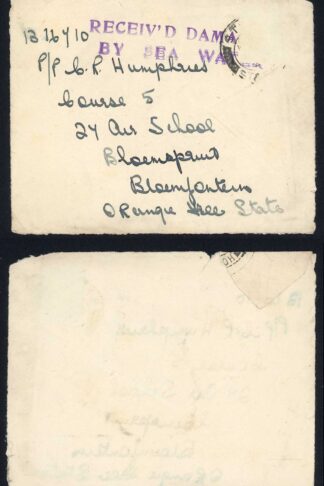 RECEIV'D DAMA
BY SEA WAT
1326710
P/P C.R. Humphries
Course 5
27 Air School
Bloemspruit
Bloemfontein
Orange Free State